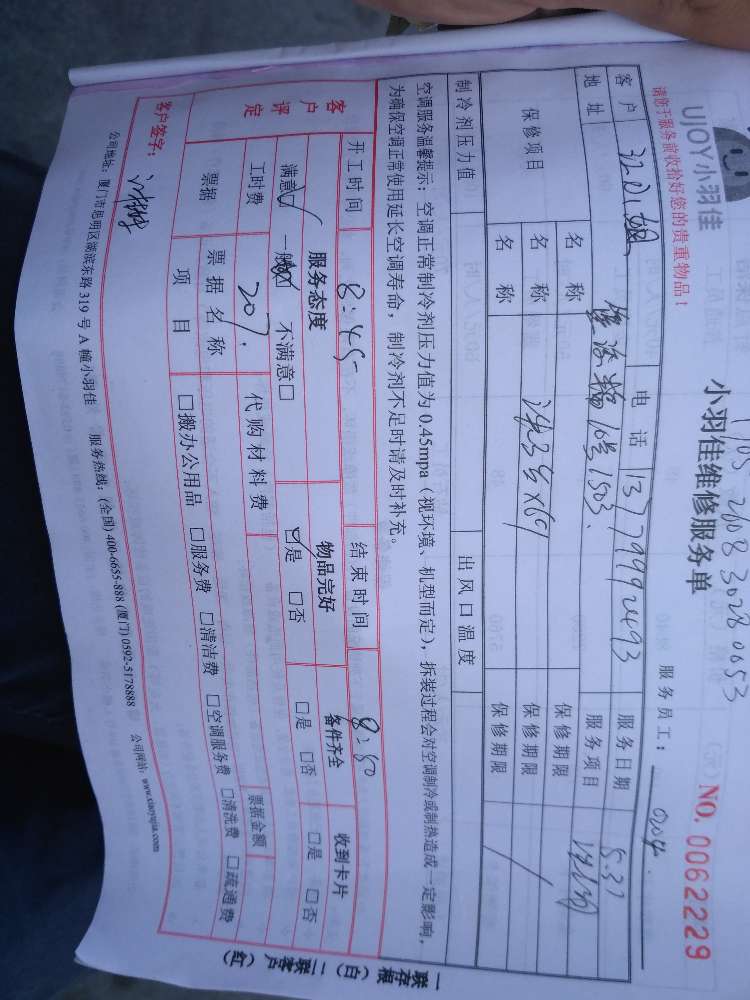 UJOY小羽佳
小羽佳维修服务单
NO. 0062229
请您于服务前收拾好您的贵重物品！
服务员工：0204
客户 电话 13799992493 服务日期
地址 1503 服务项目
保修项目 名称 保修期限
名称 保修期限
名称 保修期限
制冷剂压力值 出风口温度
空调服务温馨提示：空调正常制冷剂压力值为0.45mpa（视环境、机型而定），拆装过程会对空调制冷或制热造成一定影响，
为确保空调正常使用延长空调寿命，制冷剂不足时请及时补充。
开工时间 8:45 结束时间 8:50
客户评定 服务态度 物品完好 备件齐全 收到卡片
满意□ 一般□ 不满意□ □是 □否 □是 □否 □是 □否
工时费 207. 代购材料费 票据金额
票据 票据名称
项目 □搬办公用品 □服务费 □清洁费 □空调服务费 □清洗费 □疏通费
客户签字：
公司地址：厦门市思明区湖滨东路319号A幢小羽佳 服务热线：(全国) 400-6655-888 (厦门) 0592-5178888 公司网站：www.xiaoyujia.com
一联存根（白）二联客户（红）